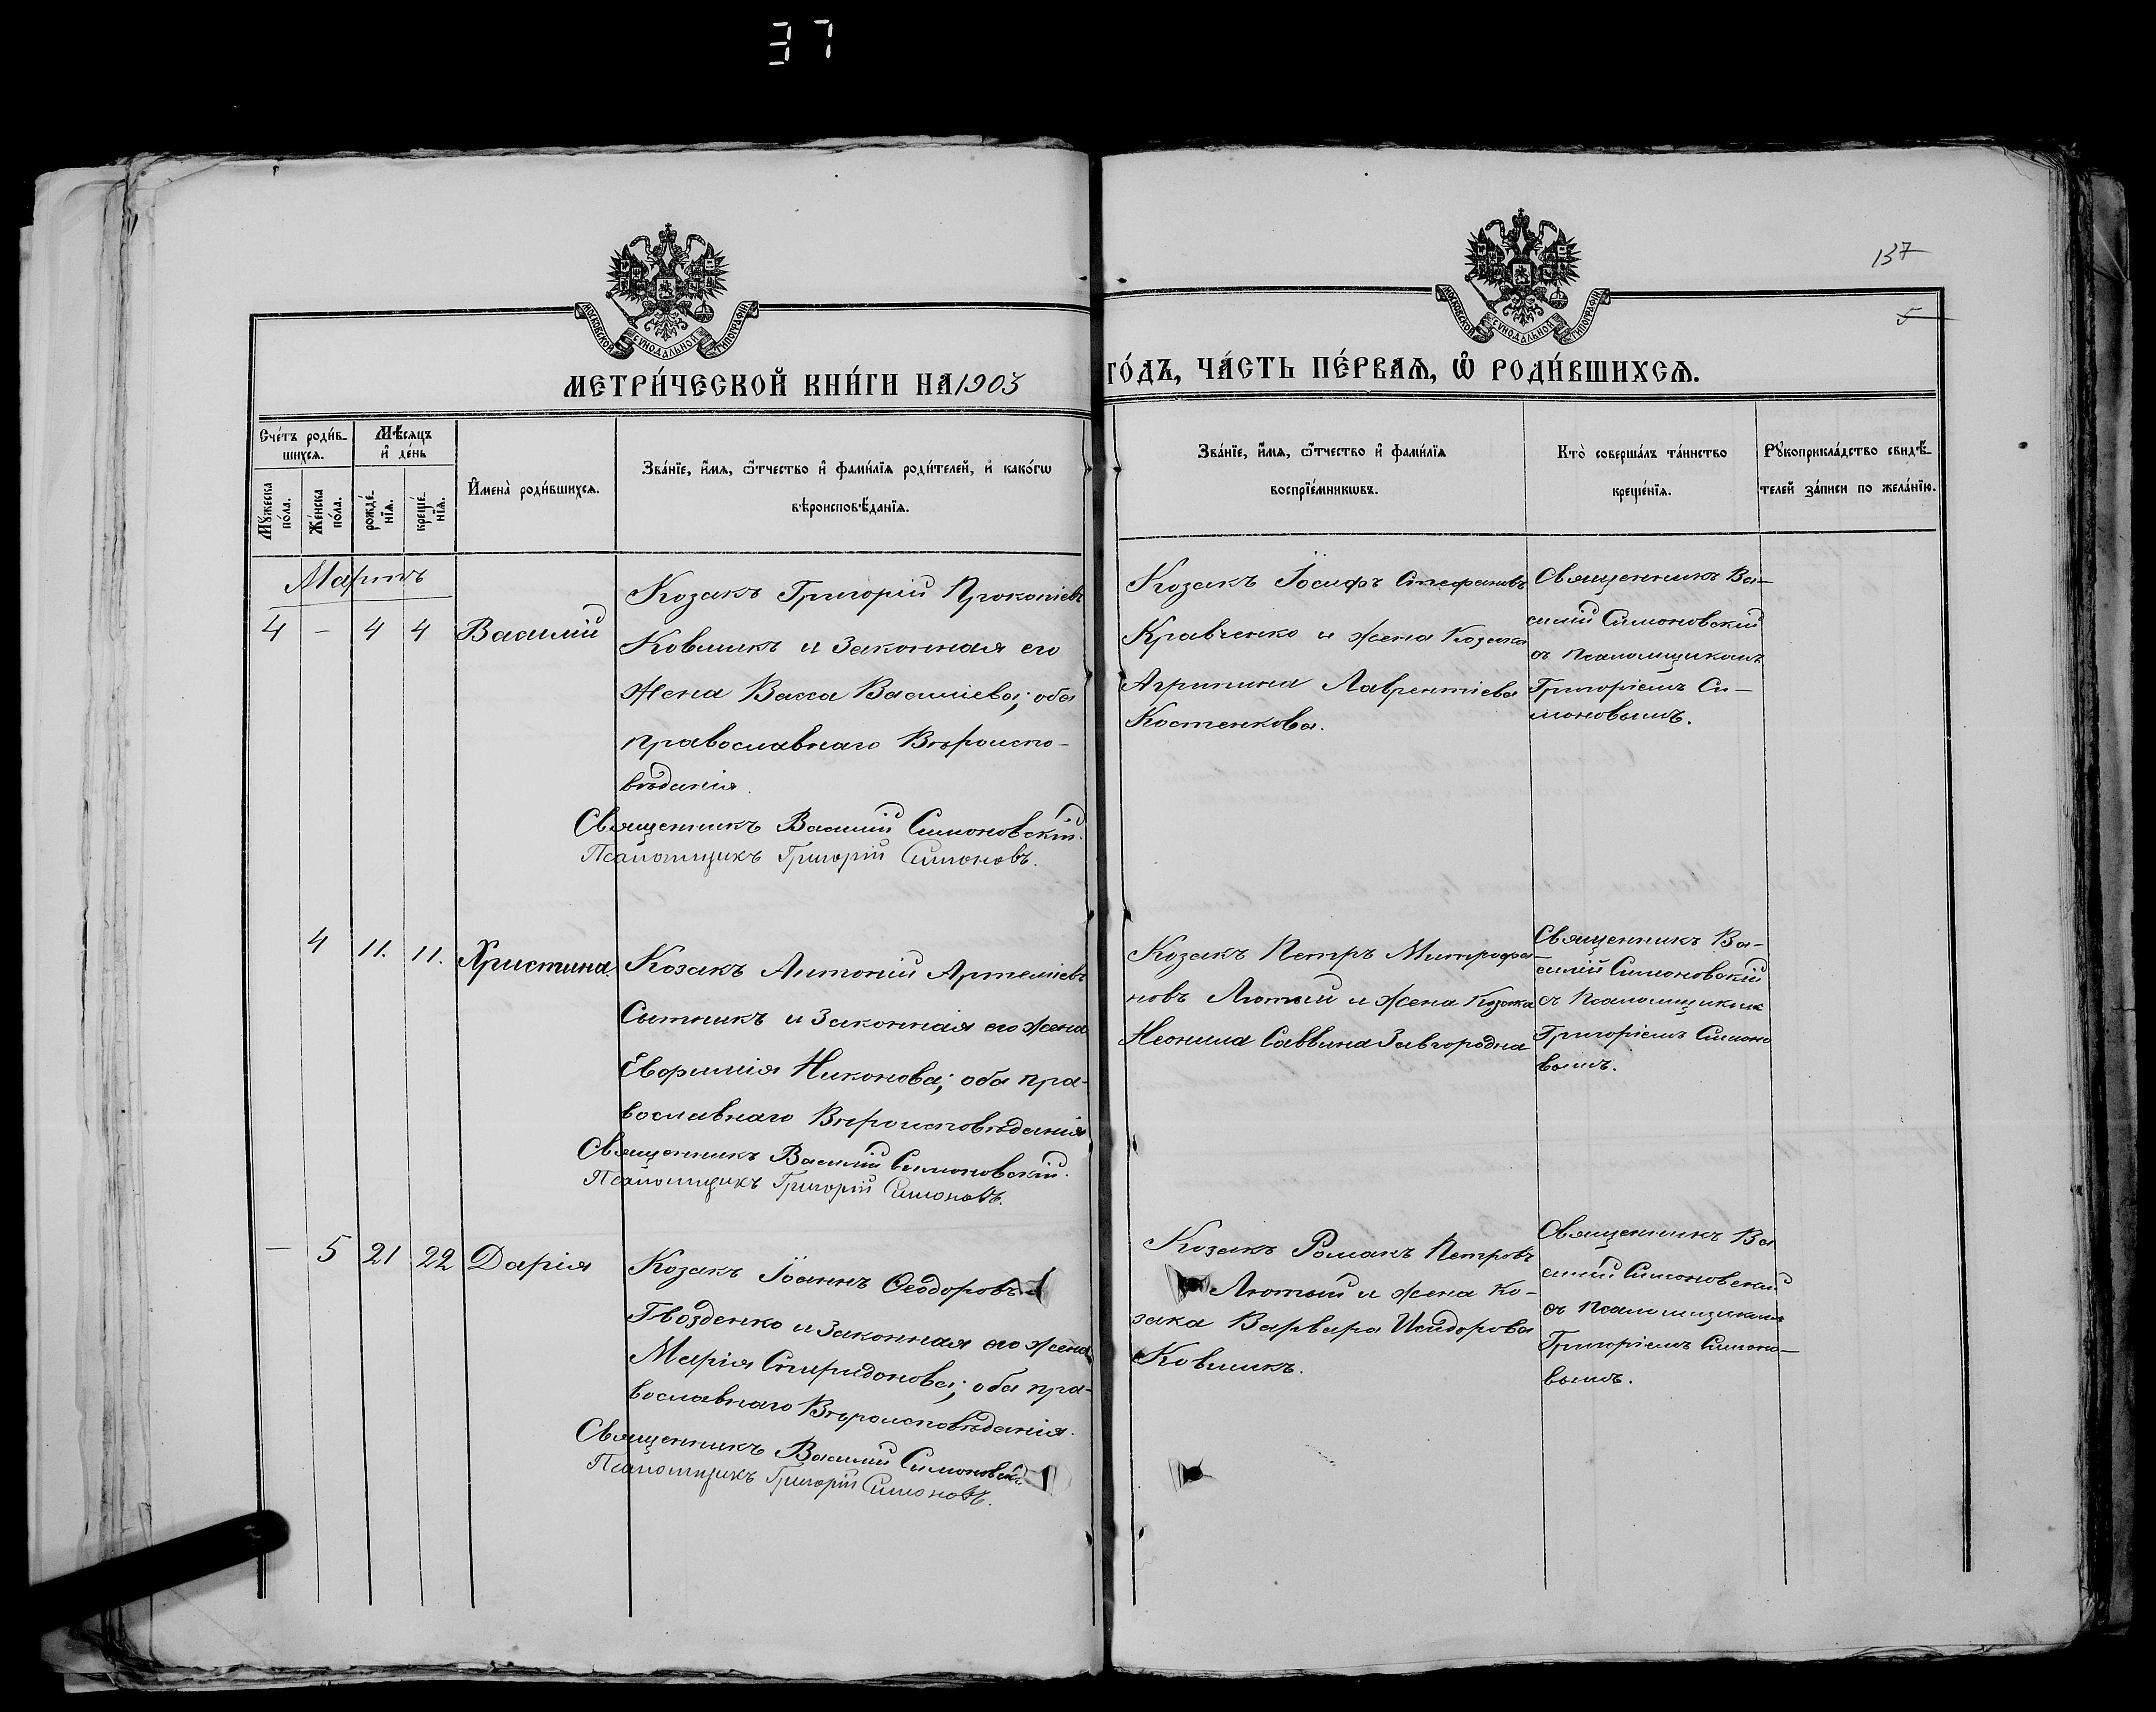 37
137
5
МОСКОВСКОЙ СѴНОДАЛЬНОЙ ТИПОГРАФІИ
МОСКОВСКОЙ СѴНОДАЛЬНОЙ ТИПОГРАФІИ
МЕТРИ́ЧЕСКОЙ КНИ́ГИ НА 1903
ГО́ДЪ, ЧА́СТЬ ПЕ́РВАЯ, Ѽ РОДИ́ВШИХСЯ.
Сче́тъ роди́в-
шихся.
Му́жеска по́ла.
Же́нска по́ла.
Мѣ́сяцъ
и҆ де́нь
рожде́нїя.
креще́нїя.
И҆мена̀ роди́вшихся.
Зва́нїе, и҆́мя, ѻ҆́тчество и҆ фами́лїя роди́телей, и҆ како́гѡ
вѣроисповѣ́данїя.
Зва́нїе, и҆́мя, ѻ҆́тчество и҆ фами́лїя
воспрїе́мникѡвъ.
Кто̀ соверша́лъ та́инство
креще́нїя.
Рꙋкоприкла́дство свидѣ́-
телей за́писи по жела́нїю.
Мартъ
4 – 4 4 Василій
Козакъ Григорій Прокопіевъ
Ковшикъ и законная его
жена Васса Васильева; оба
православнаго Вѣроиспо-
вѣданія.
Священникъ Василій Симоновскій.
Псаломщикъ Григорій Симоновъ.
Козакъ Іосифъ Стефановъ
Кравченко и жена Козака
Агрипина Лаврентіева
Костенкова.
Священникъ Ва-
силій Симоновскій
съ Псаломщикомъ
Григоріемъ Си-
моновымъ.
4 11. 11. Христина.
Козакъ Антоній Артеміевъ
Сытникъ и законная его жена
Евфимія Никонова; оба пра-
вославнаго Вѣроисповѣданія
Священникъ Василій Симоновскій.
Псаломщикъ Григорій Симоновъ.
Козакъ Петръ Митрофа-
новъ Лютый и жена Козака
Неонила Саввина Завгородня
Священникъ Ва-
силій Симоновскій
съ Псаломщикомъ
Григоріемъ Симоно
вымъ.
– 5 21 22 Дарія
Козакъ Іоаннъ Ѳеодоровъ
Гвозденко и законная его жена
Марія Спиридонова; оба пра-
вославнаго Вѣроисповѣданія.
Священникъ Василій Симоновскій
Псаломщикъ Григорій Симоновъ.
Козакъ Романъ Петровъ
Лютый и жена Ко-
зака Варвара Исидорова
Ковшикъ.
Священникъ Ва
силій Симоновскій
съ Псаломщикомъ
Григоріемъ Симоно-
вымъ.